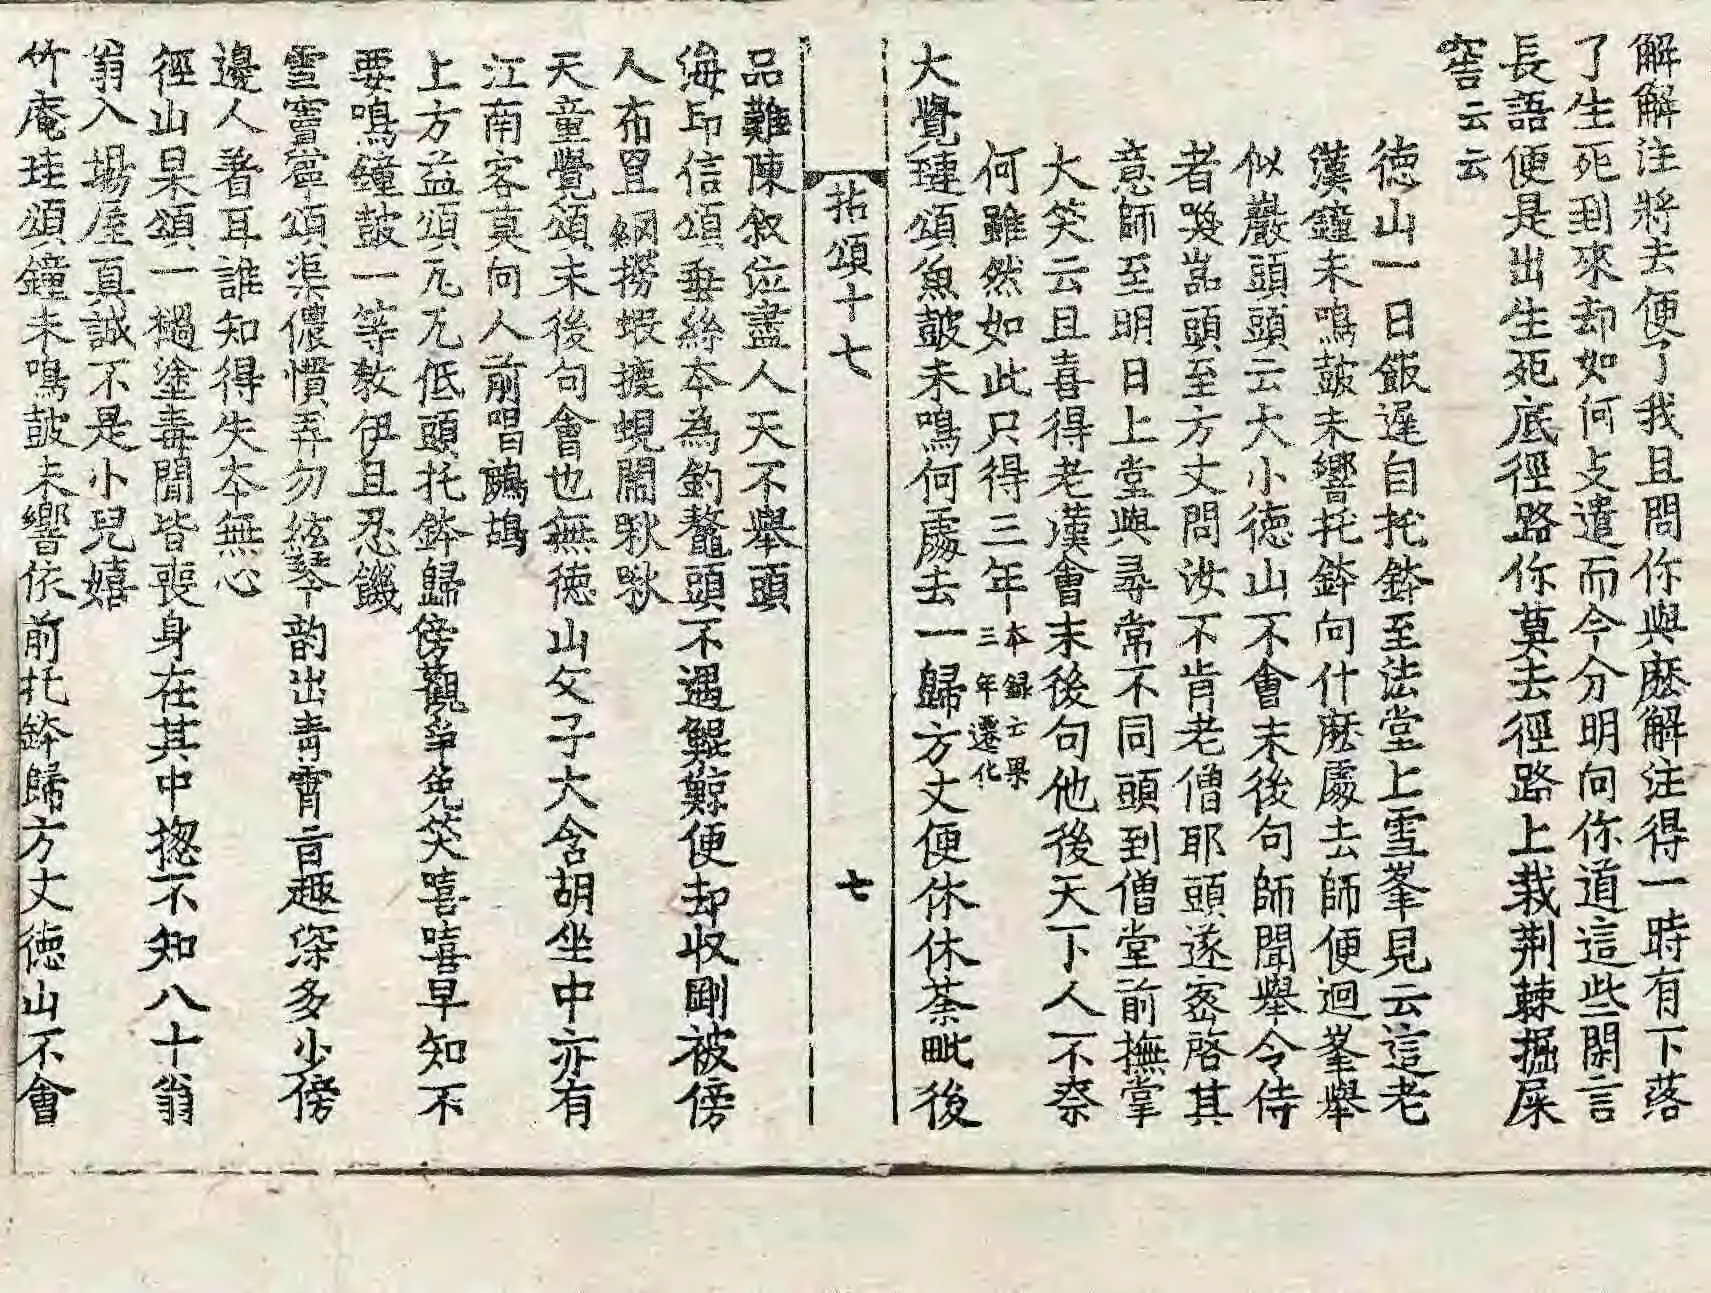 解解注將去便了我且問你與麽解注得一時有下落
了生死到來却如何支遣而今分明向你道這些閑言
長語便是出生死底徑路你莫去徑路上栽荆棘掘屎
窖云云
德山一日飯遲自托鉢至法堂上雪峯見云這老
漢鐘未鳴鼓未響托鉢向什麽處去師便迴峯舉
似巖頭頭云大小德山不會末後句師聞舉令侍
者喚嵓頭至方丈問汝不肯老僧耶頭遂密啓其
意師至明日上堂與尋常不同頭到僧堂前撫掌
大笑云且喜得老漢會末後句他後天下人不柰
何雖然如此只得三年本録云果三年遷化
大覺璉頌魚鼓未鳴何處去一歸方丈便休休荼毗後
拈頌十七 七
品難陳叙位盡人天不舉頭
海印信頌垂絲本為釣鼇頭不遇鯤鯨便却收剛被傍
人布罝網撈蝦摝蜆鬧啾啾
天童覺頌末後句會也無德山父子大含胡坐中亦有
江南客莫向人前唱鷓鴣
上方益頌兀兀低頭托鉢歸傍觀爭免笑嘻嘻早知不
要鳴鐘鼓一等教伊且忍飢
雪竇寧頌渠儂慣弄勿絃琴韵出青霄旨趣深多少傍
邊人着耳誰知得失本無心
徑山杲頌一檛塗毒聞皆喪身在其中揔不知八十翁
翁入場屋真誠不是小兒嬉
竹庵珪頌鐘未鳴鼓未響依前托鉢歸方丈德山不會